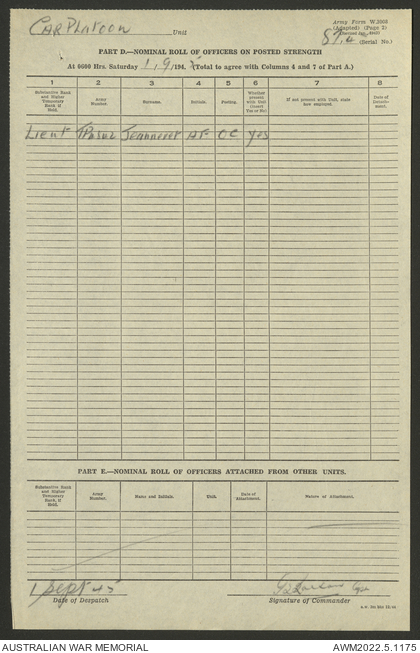 CAR PLATOON Unit
Army Form W.3008
(Adapted) (Page 2)
(Serial No.)
PART D.—NOMINAL ROLL OF OFFICERS ON POSTED STRENGTH
At 0600 Hrs. Saturday 1,9,194.5 (Total to agree with Columns 4 and 7 of Part A.)
1 2 3 4 5 6 7 8
Substantive Rank and Higher Temporary Rank if Held. Army Number. Surname. Initials. Posting. Whether present with Unit (insert Yes or No) If not present with Unit, state how employed. Date of Detachment.
Lieut OC yes
PART E.—NOMINAL ROLL OF OFFICERS ATTACHED FROM OTHER UNITS.
Substantive Rank and Higher Temporary Rank, if Held. Army Number. Name and Initials. Unit. Date of Attachment. Nature of Attachment.
1 Sept 45
Date of Despatch Signature of Commander
AUSTRALIAN WAR MEMORIAL AWM2022.5.1175